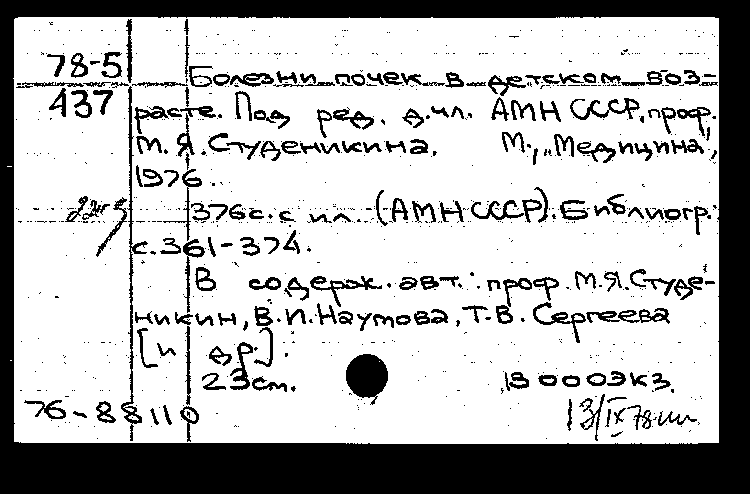 78-5
437
Болезни почек в детском воз-
расте. Под ред. д.чл. АМН СССР, проф.
М.Я.Студеникина. М., „Медицина",
1976.
376с. с ил. (АМН СССР). Библиогр.:
с.361-374.
В содерж. авт.: проф. М.Я.Студе-
никин, В.И.Наумова, Т.В. Сергеева
[и др.].
23см. 13000экз.
76-88110
13/IX 78